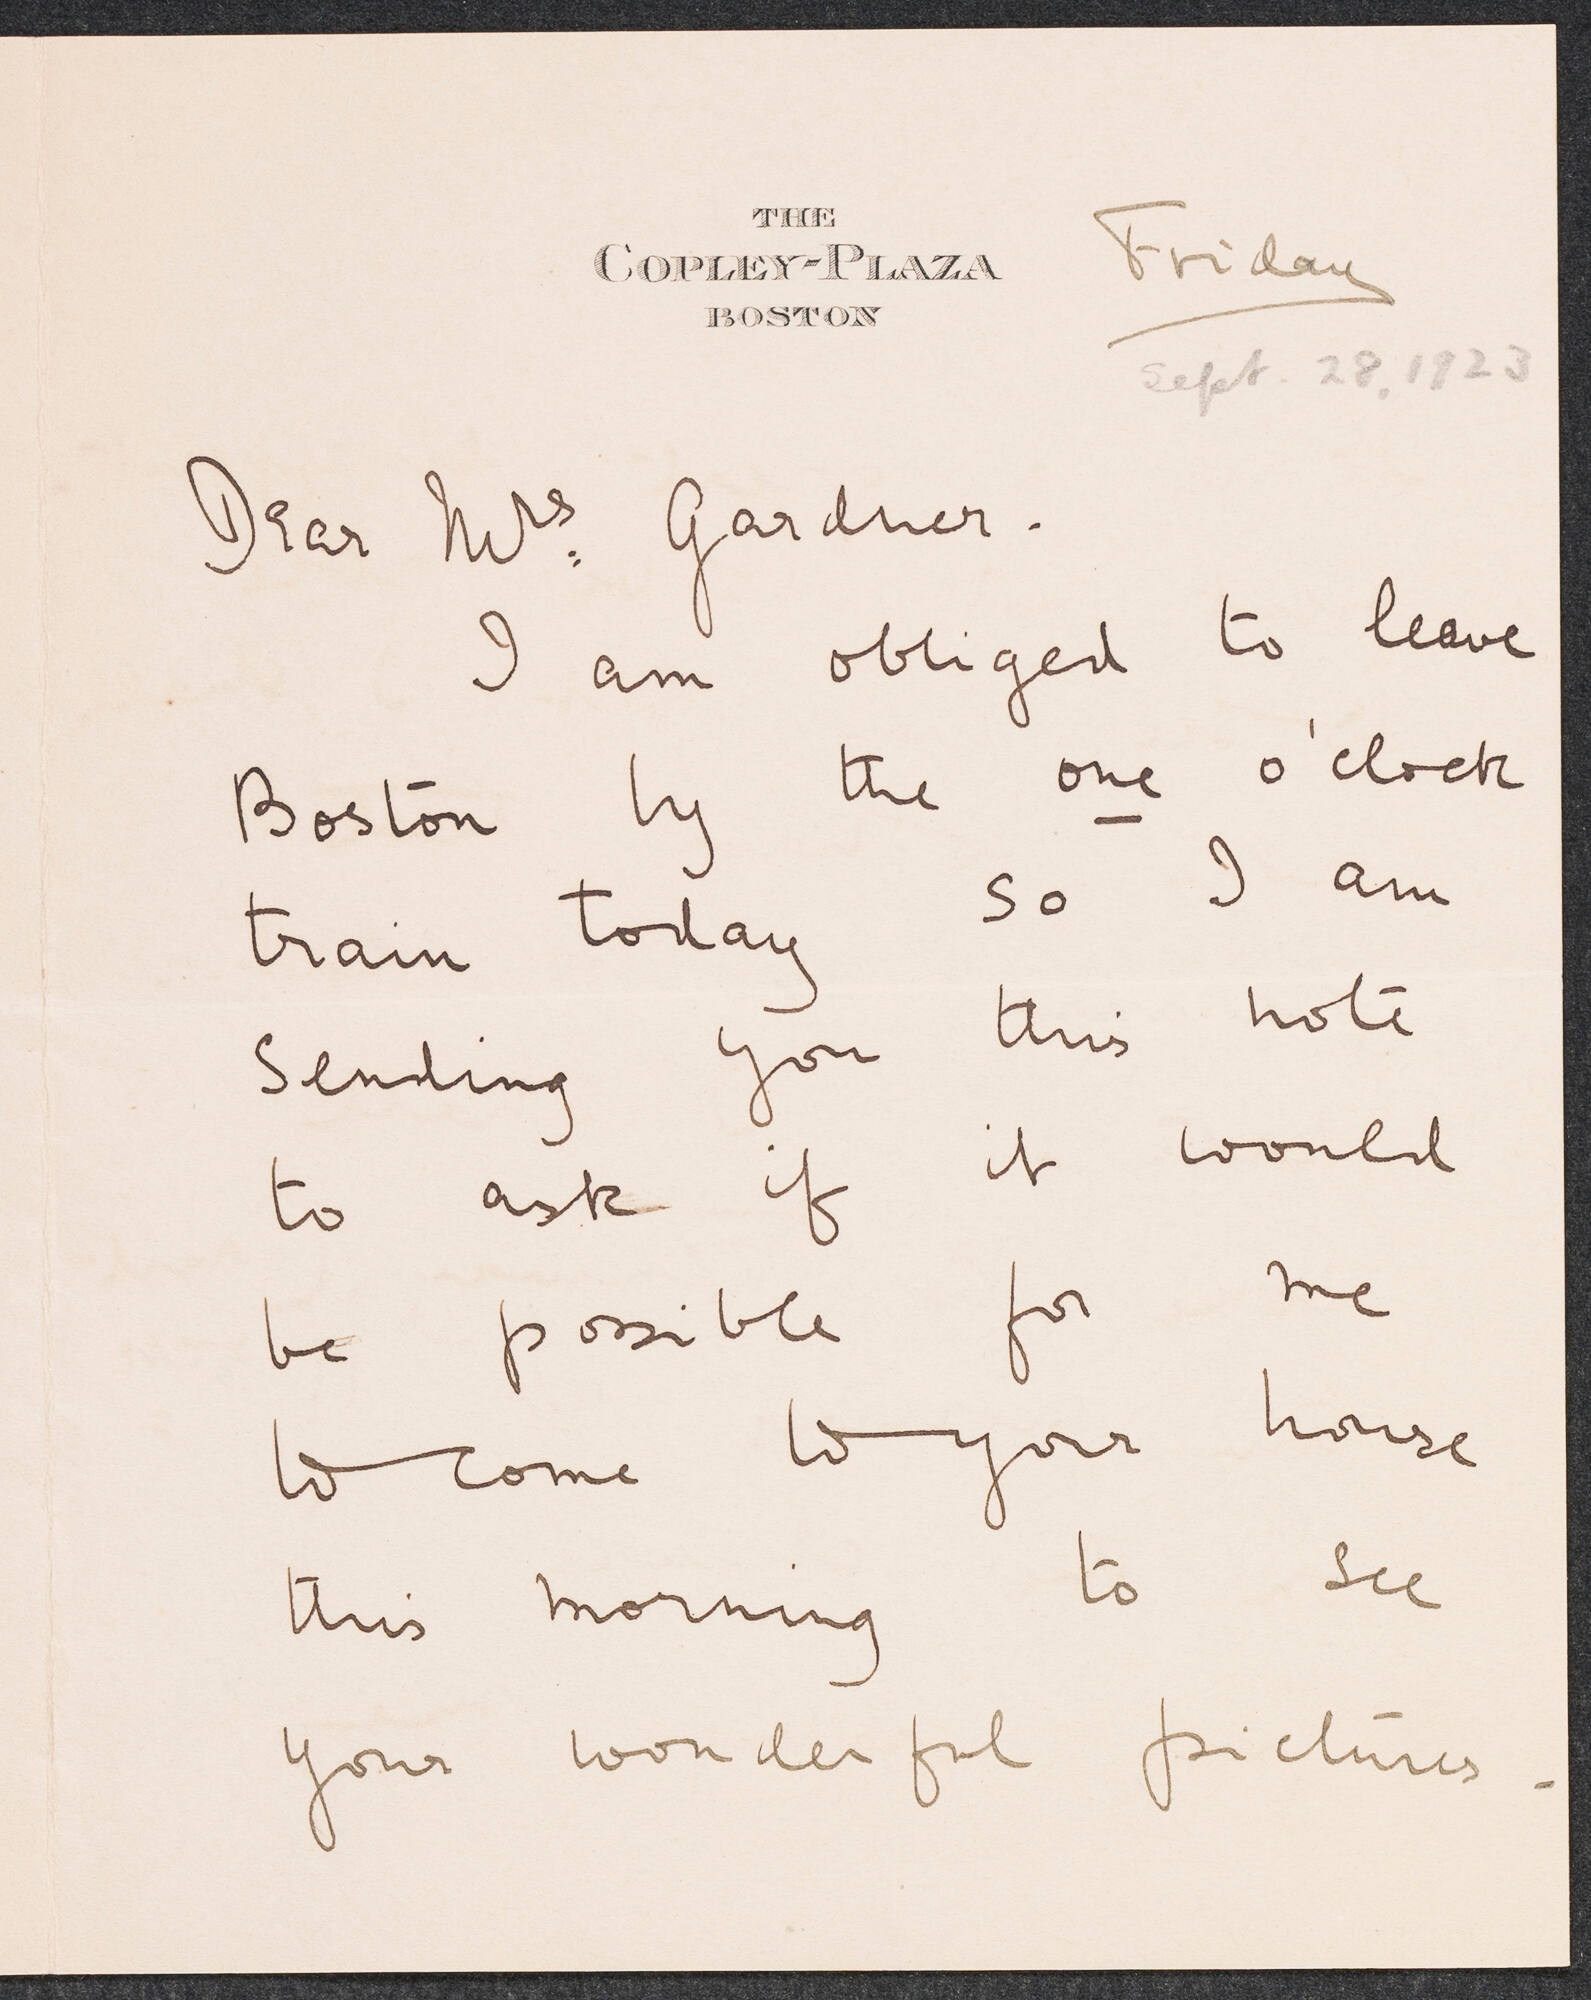 THE
COPLEY-PLAZA
BOSTON
Friday
Sept. 28, 1923
Dear Mrs. Gardner.
I am obliged to leave
Boston by the one o'clock
train today so I am
sending you this note
to ask if it would
be possible for me
to come to your house
this morning to see
your wonderful pictures.